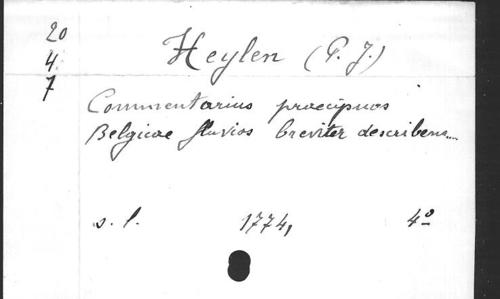 20
4
7
Heylen (P. J.)
Commentarius praecipuos
Belgicae fluvios breviter describens....
s. l. 1774, 4º